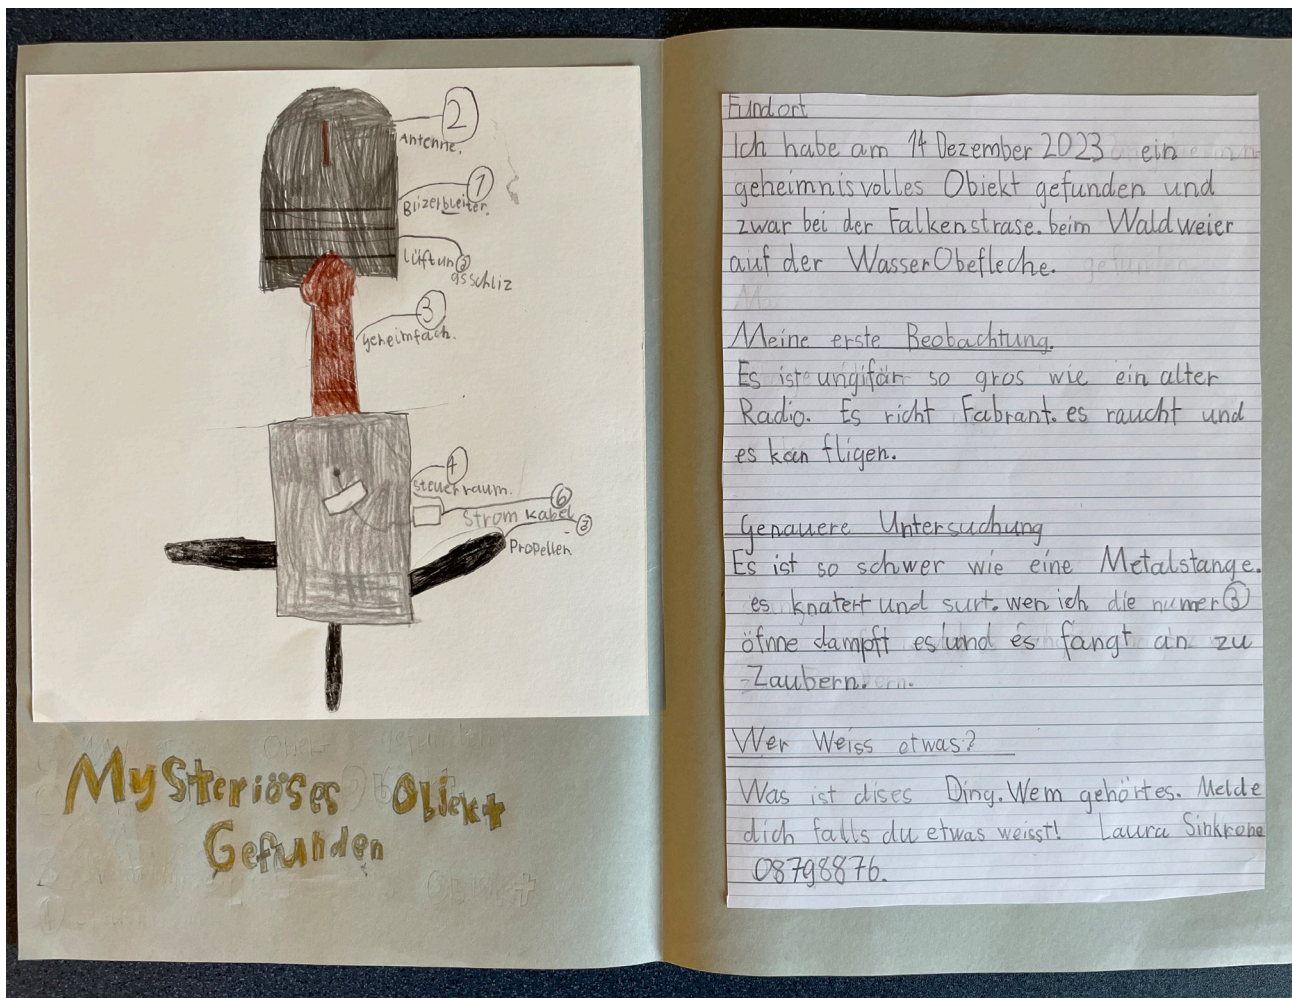 2
Antenne.
1
Blizerbleiter.
Lüftun
gsschliz
3
geheimfach.
4
Steuerraum.
6
Strom kabel
Propeller
Mysteriöses Objekt
Gefunden
Fundort
Ich habe am 14 Dezember 2023 ein
geheimnisvolles Objekt gefunden und
zwar bei der Falkenstrase. beim Waldweier
auf der WasserObefleche.
Meine erste Beobachtung.
Es ist ungifär so gros wie ein alter
Radio. Es richt Fabrant. es raucht und
es kan fligen.
Genauere Untersuchung
Es ist so schwer wie eine Metalstange.
es knatert und surt. wen ich die numer 3
öfnne dampft es und es fangt an zu
Zaubern.
Wer Weiss etwas?
Was ist dises Ding. Wem gehörtes. Melde
dich falls du etwas weisst! Laura Sinkrohe
08798876.